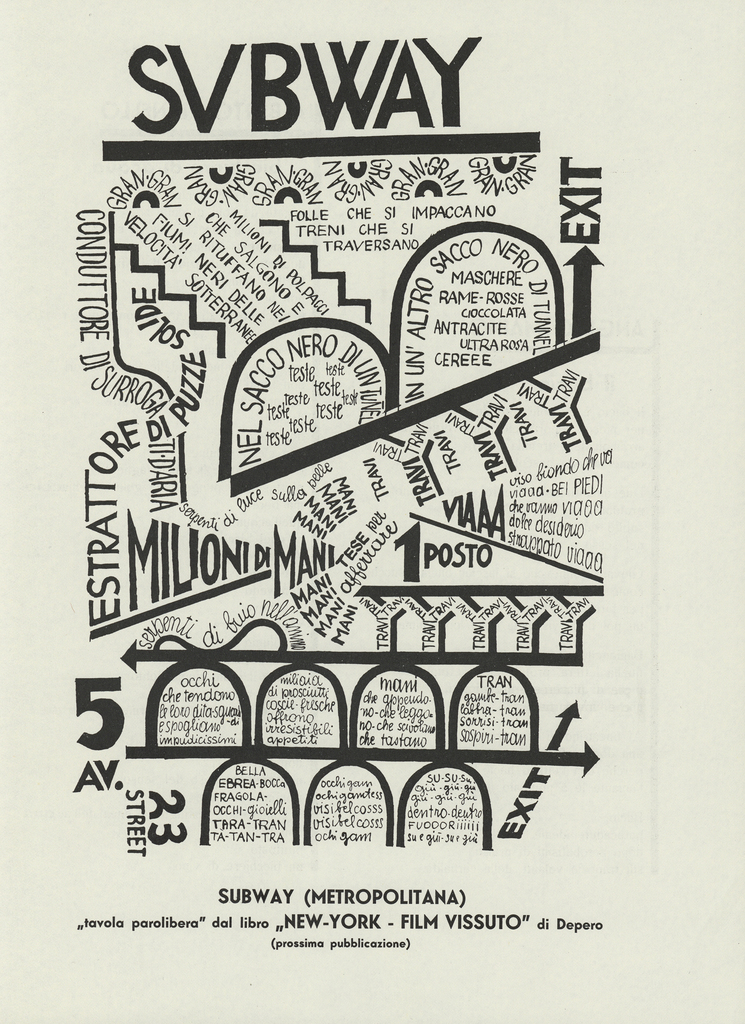 SVBWAY
GRAN·GRAN
GRAN·GRAN
GRAN·GRAN
GRAN·GRAN
GRAN·GRAN
GRAN·GRAN
EXIT
FOLLE CHE SI IMPACCANO
TRENI CHE SI
TRAVERSANO
MILIONI DI POLPACCI
CHE SALGONO E
SI RITUFFANO NEI
FIUMI NERI DELLE
VELOCITA' SOTTERRANEE
CONDUTTORE DI SURROGATI-D'ARIA
ESTRATTORE DI PUZZE SOLIDE
NEL SACCO NERO DI UN TUNEL
teste teste
teste teste
teste teste
teste teste
teste
IN UN' ALTRO SACCO NERO DI TUNNEL
MASCHERE
RAME-ROSSE
CIOCCOLATA
ANTRACITE
ULTRAROSA
CEREEE
TRAVI TRAVI TRAVI TRAVI TRAVI
TRAVI TRAVI TRAVI TRAVI TRAVI
serpenti di luce sulla pelle
MILIONI DI MANI
MANI
MANI
MANI
MANI
TESE per
afferrare
MANI
MANI
MANI
MANI
1 POSTO
VIAAA
viso biondo che va
viaaa·BEI PIEDI
che vanno viaaa
dolce desiderio
strappato viaaa
serpenti di buio nell'anima
TRAVI TRAVI TRAVI TRAVI TRAVI
TRAVI TRAVI TRAVI TRAVI TRAVI
5
AV.
23
STREET
occhi
che tendono
le loro dita-sguardi
e spogliano-di
impudicissimi
miliaia
di prosciutti
coscie-fresche
offrono
irresistibili
appetiti
mani
che appendo-
no-che leggo-
no-che scivolano
che tastano
TRAN
gambe-tran
labbra-tran
sorrisi-tran
sospiri-tran
BELLA
EBREA-BOCCA
FRAGOLA-
OCCHI-gioielli
TARA-TRAN
TA-TAN-TRA
occhi gam
ochi gandess
visibel cosss
visibel cosss
ochi gam
su-su-su
giù-giù-giù
giù-giù-giù
dentro-dentro
FUOOORiiiiii
su e giù-su e giù
EXIT
SUBWAY (METROPOLITANA)
„tavola parolibera" dal libro „NEW-YORK - FILM VISSUTO" di Depero
(prossima pubblicazione)